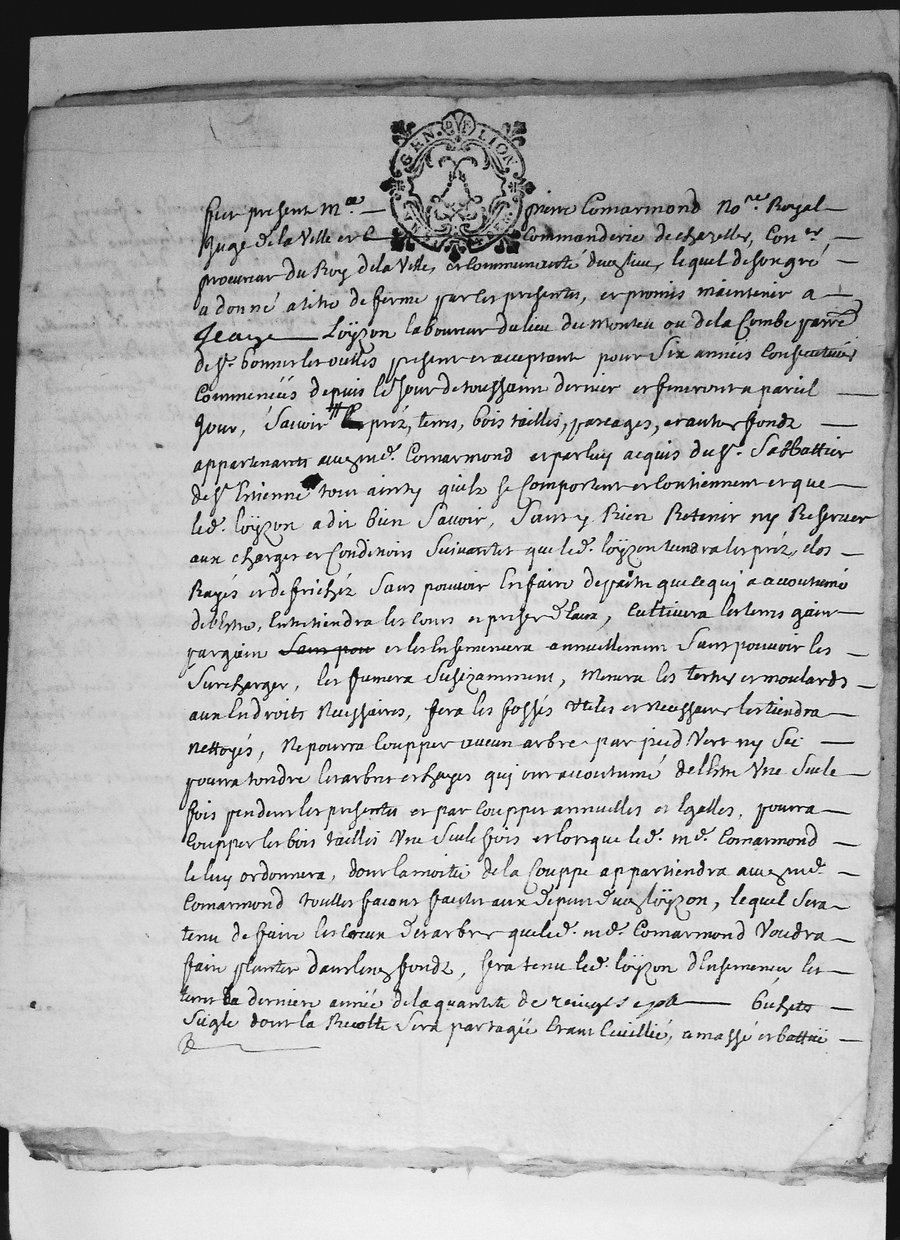 GEN. DE LION
fut present me pierre Comarmond nore Royal
Juge de la Ville et Commanderie de chazelles, Coner,
procureur du Roy de la Ville, et Communauté dud. lieu, lequel de son gré
a donné a titre de ferme par les presentes, et promis maintenir a
Jean Loÿzon laboureur du lieu du Monteu ou de la Combe parre
de st. bonnet les oulles present et acceptant pour Six années Consecutives
Commencées depuis le Jour de toussaint dernier et finiront a pareil
Jour, Scavoir préz, terres, bois tailles, pascages, et autres fondz
appartenants aud. me. Comarmond et par luy acquis du sr. Sabbattier
de st. Etienne tout ainsy quilz se Comportent et Contiennent et que
led. loÿzon a dit bien Scavoir, Sans y Rien Retenir ny Reserver
aux charges et Conditions Suivantes que led. loÿzon tendra les préz, clos
Rayés et defrichéz Sans pouvoir En faire depaitre que ce qui a accoutumé
de l'Estre, Entretiendra les cours et prises d'Eaux, Cultivera les terres gain
par gain sans pou et les Ensemencera annuellement Sans pouvoir les
Surcharger, les fumera Sufizamment, Menera les terres et moulards
aux Endroits Necessaires, fera les fossés Utiles et necessaires les tiendra
nettoyés, Ne pourra Coupper aucun arbre par pied Vert ny Sec
pourra tondre les arbres et hayes qui ont accoutumé de l'Estre Une Seule
fois pendant les presentes et par Couppes annuelles et Egalles, pourra
Coupper les bois taillis Une Seule fois et lorsque led. me. Comarmond
le luy ordonnera, dont la moitié de la Couppe appartiendra aud. me.
Comarmond touttes facons faites aux depens dud. loÿzon, lequel Sera
tenu de faire les Creux des arbres que led. me. Comarmond Voudra
faire planter dans lesd. fondz, Sera tenu led. loÿzon d'Ensemencer les
terres la derniere année de la quantité de bichets
Seigle dont la Recolte Sera partagée Etant Cueillie, amassé et battüe